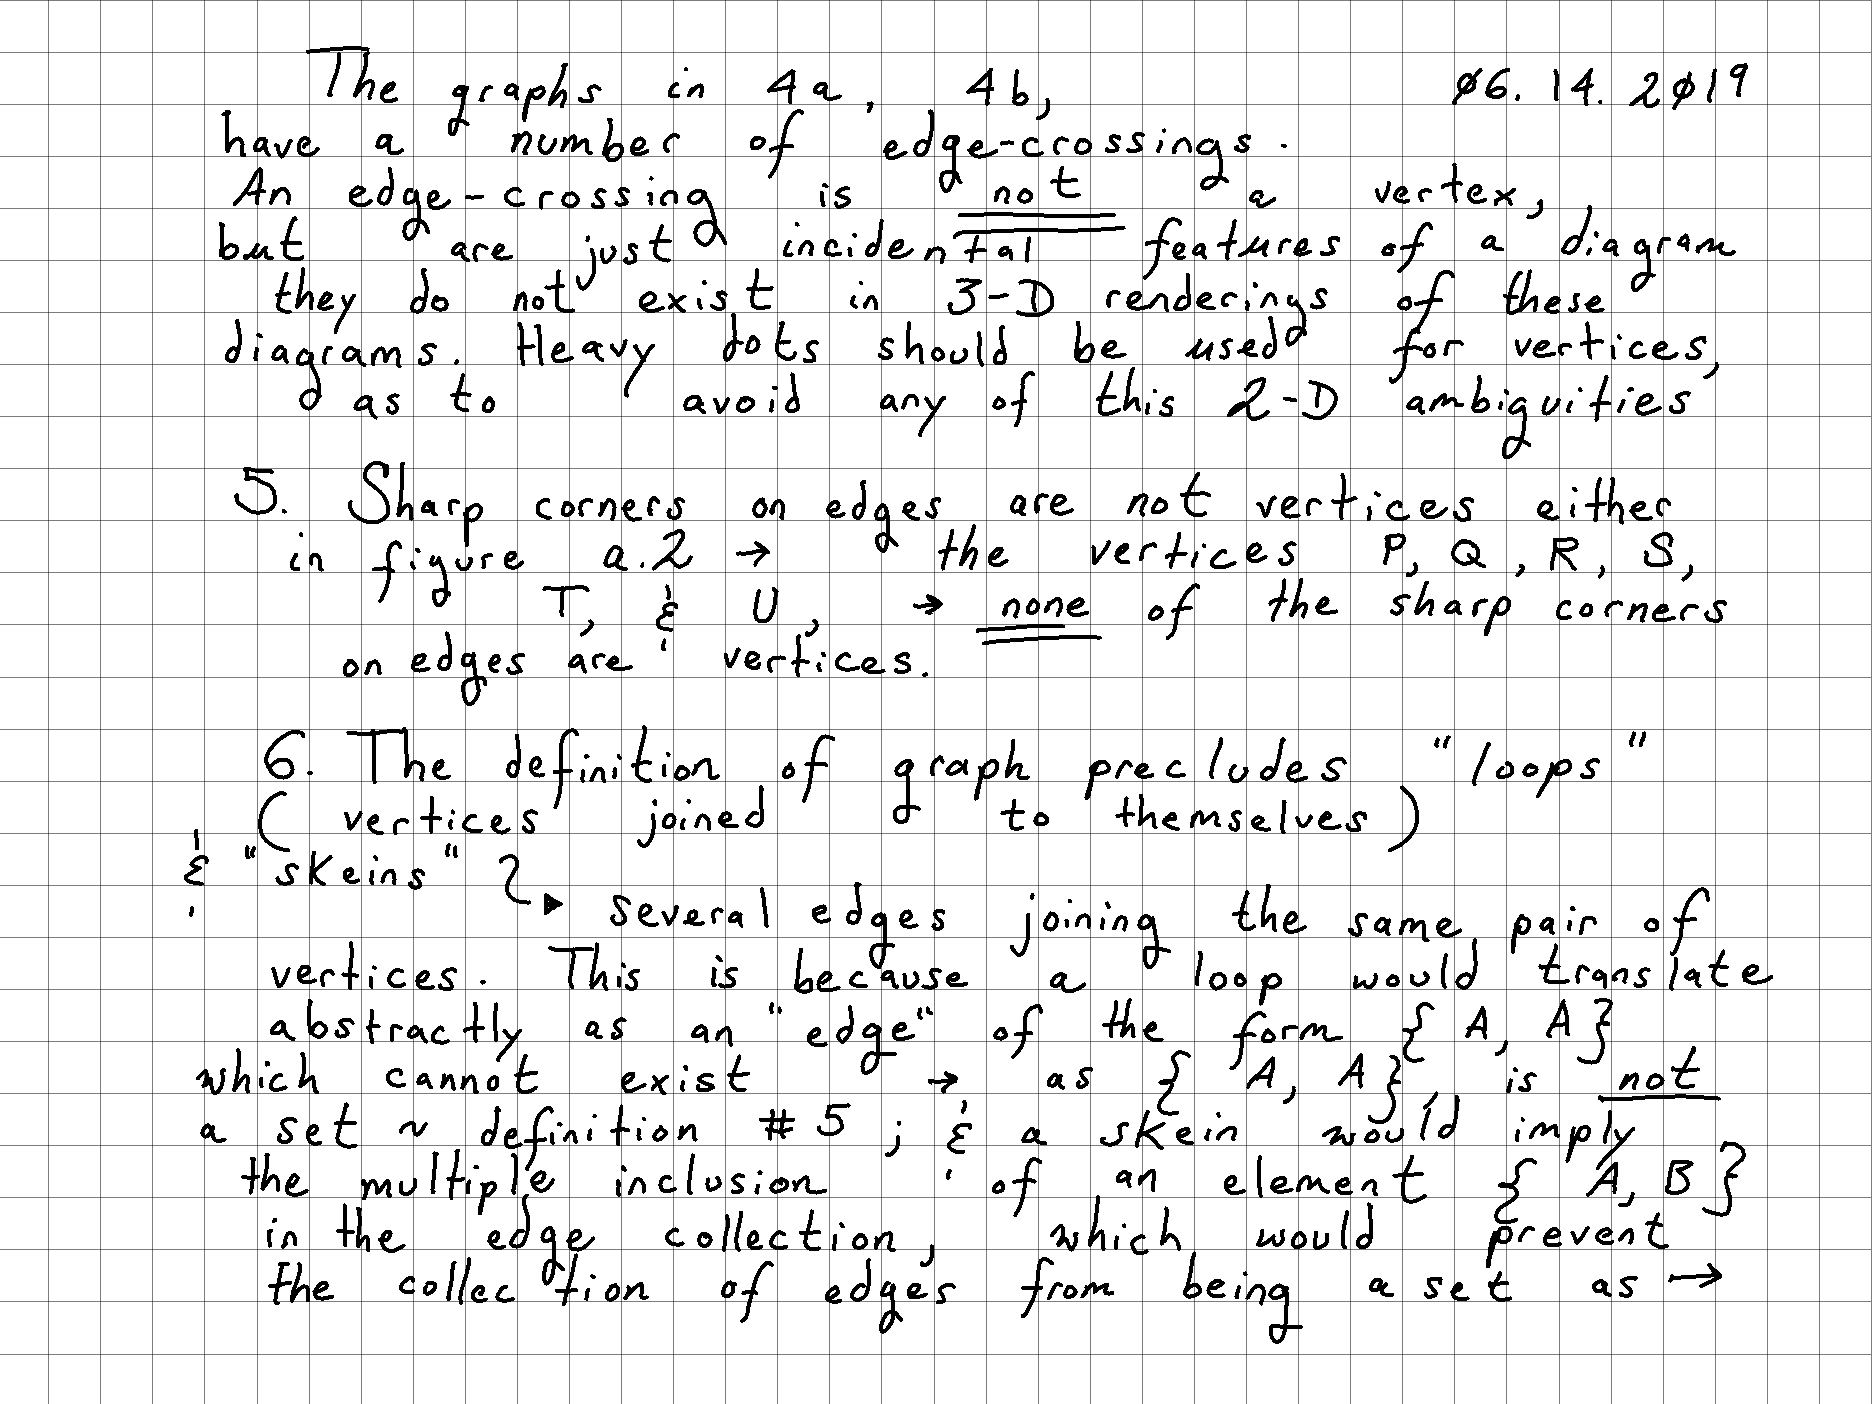 The graphs in 4a, 4b, Ø6. 14. 2Ø19
have a number of edge-crossings.
An edge-crossing is not a vertex,
but are just incidental features of a diagram
they do not exist in 3-D renderings of these
diagrams. Heavy dots should be used for vertices,
as to avoid any of this 2-D ambiguities
5. Sharp corners on edges are not vertices either
in figure a.2 → the vertices P, Q, R, S,
T, & U, → none of the sharp corners
on edges are vertices.
6. The definition of graph precludes "loops"
( vertices joined to themselves )
& "skeins"
several edges joining the same pair of
vertices. This is because a loop would translate
abstractly as an "edge" of the form { A, A }
which cannot exist → as { A, A }, is not
a set ~ definition #5 ; & a skein would imply
the multiple inclusion of an element { A, B }
in the edge collection, which would prevent
the collection of edges from being a set as →